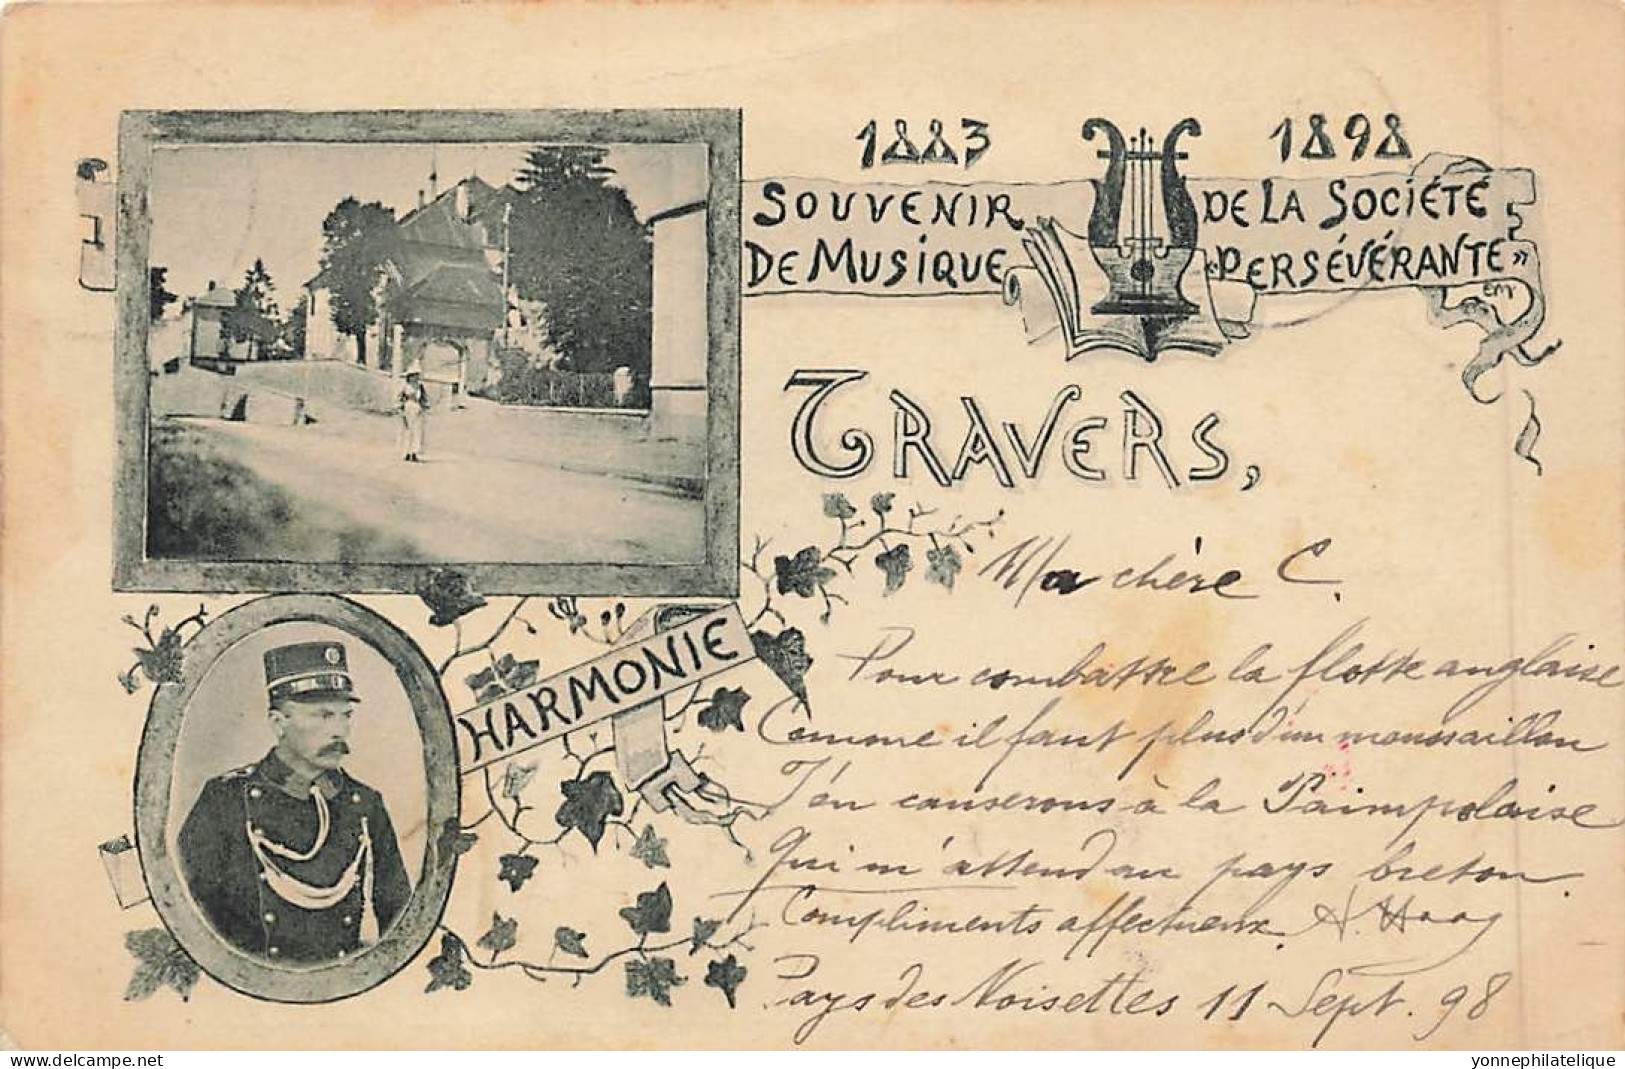 1883 1898
SOUVENIR DE LA SOCIÉTÉ
DE MUSIQUE «PERSÉVÉRANTE»
TRAVERS,
HARMONIE
Ma chère C.
Pour combattre la flotte anglaise
Comme il faut plus d'un moussaillon
J'en causerons à la Paimpolaise
Qui m'attend au pays breton.
Compliments affectueux. A. Haag
Pays des Noisettes 11 Sept. 98
delcampe.net
yonnephilatelique